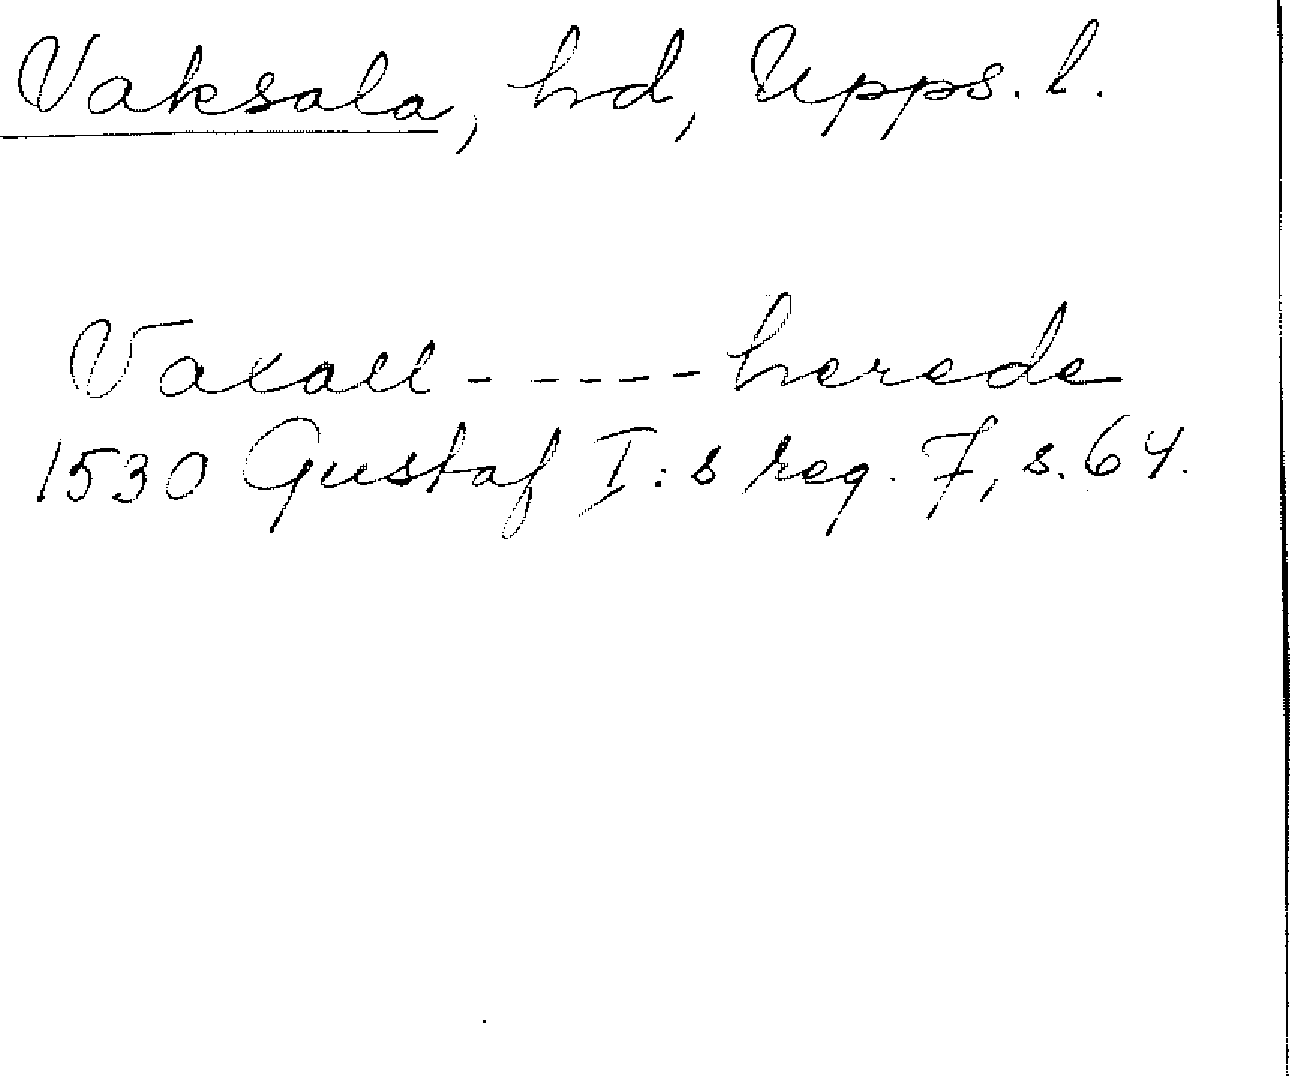 Vaksala, hd, Upps. l.
Vaxall - - - - - herede
1530 Gustaf I:s reg. 7, s. 64.